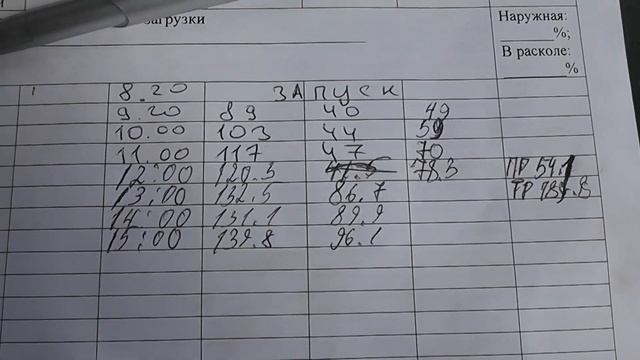 загрузки
Наружная:
%;
В расколе:
%
8.20 ЗАПУСК
9.20 89 40 49
10.00 103 44 59
11.00 117 47 70
12:00 120.3 78.3 ПР 54.1
13:00 132.5 86.7 ТР
14:00 131.1 89.9
15:00 139.8 96.1